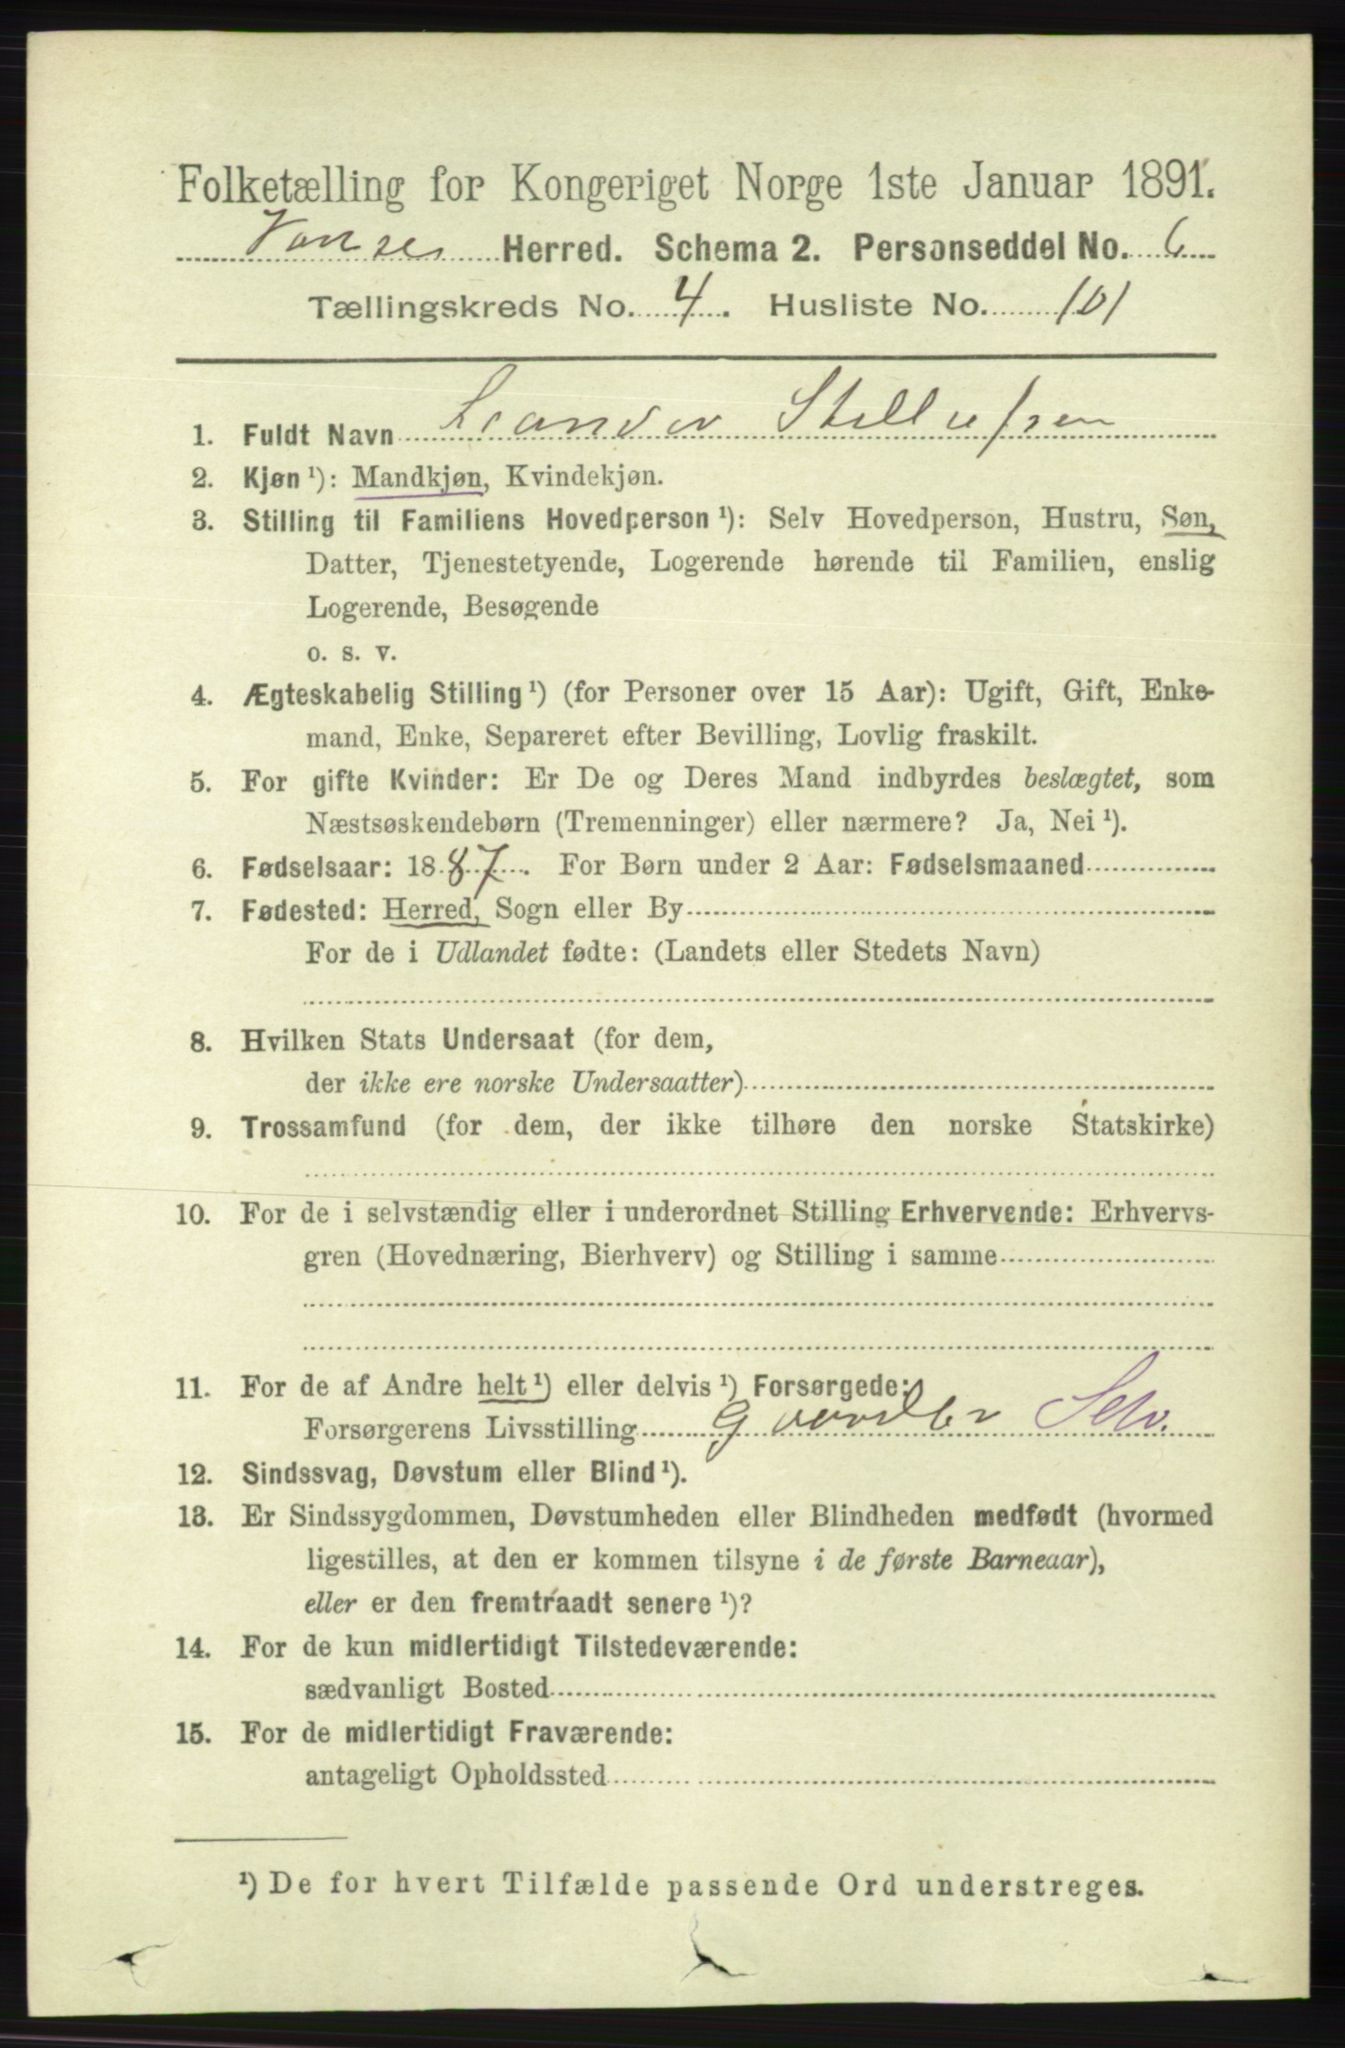 Folketælling for Kongeriget Norge 1ste Januar 1891.
Vanse Herred. Schema 2. Personseddel No. 6
Tællingskreds No. 4. Husliste No. 101
1. Fuldt Navn Leander
2. Kjøn ¹): Mandkjøn, Kvindekjøn.
3. Stilling til Familiens Hovedperson ¹): Selv Hovedperson, Hustru, Søn,
Datter, Tjenestetyende, Logerende hørende til Familien, enslig
Logerende, Besøgende
o. s. v.
4. Ægteskabelig Stilling ¹) (for Personer over 15 Aar): Ugift, Gift, Enke-
mand, Enke, Separeret efter Bevilling, Lovlig fraskilt.
5. For gifte Kvinder: Er De og Deres Mand indbyrdes beslægtet, som
Næstsøskendebørn (Tremenninger) eller nærmere? Ja, Nei ¹).
6. Fødselsaar: 1887. For Børn under 2 Aar: Fødselsmaaned
7. Fødested: Herred, Sogn eller By
For de i Udlandet fødte: (Landets eller Stedets Navn)
8. Hvilken Stats Undersaat (for dem,
der ikke ere norske Undersaatter)
9. Trossamfund (for dem, der ikke tilhøre den norske Statskirke)
10. For de i selvstændig eller i underordnet Stilling Erhvervende: Erhvervs-
gren (Hovednæring, Bierhverv) og Stilling i samme
11. For de af Andre helt ¹) eller delvis ¹) Forsørgede:
Forsørgerens Livsstilling Gaardbr Selv.
12. Sindssvag, Døvstum eller Blind ¹).
13. Er Sindssygdommen, Døvstumheden eller Blindheden medfødt (hvormed
ligestilles, at den er kommen tilsyne i de første Barneaar),
eller er den fremtraadt senere ¹)?
14. For de kun midlertidigt Tilstedeværende:
sædvanligt Bosted
15. For de midlertidigt Fraværende:
antageligt Opholdssted
¹) De for hvert Tilfælde passende Ord understreges.